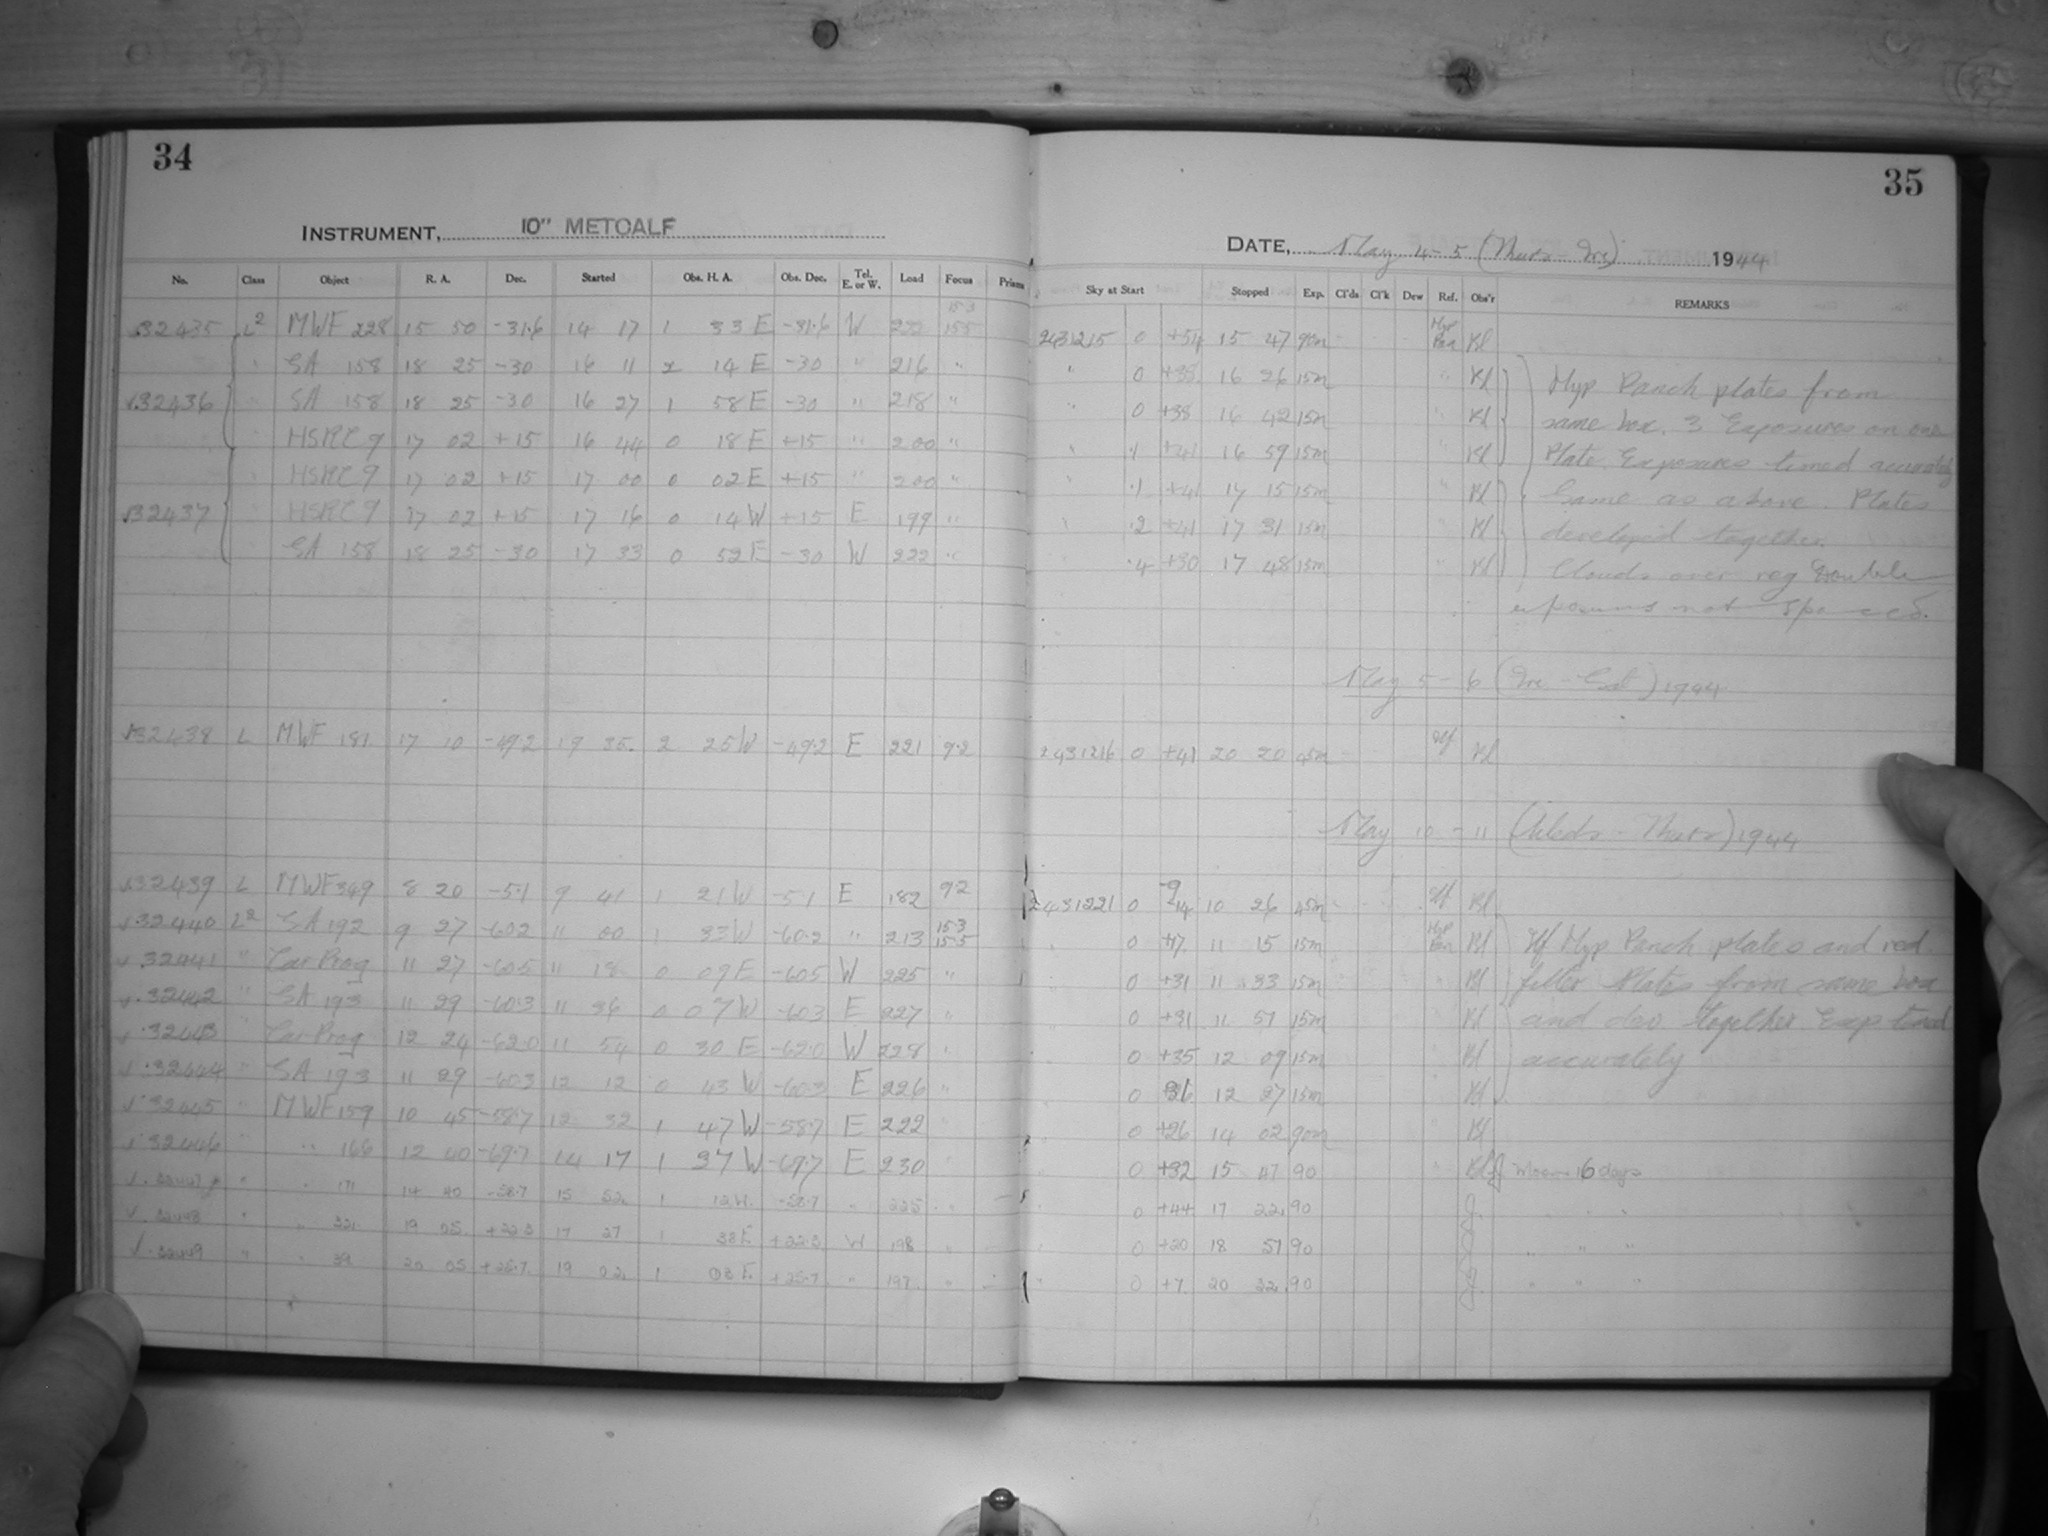 34
INSTRUMENT, 10" METCALF
No. Class Object R. A. Dec. Started Obs. H. A. Obs. Dec. Tel. E. or W. Load Focus Prisms
32435 L2 MWF 228 15 50 -31.6 14 17 1 33 E -31.6 W 222 15.3 15.5
" SA 158 18 25 -30 16 11 2 14 E -30 " 216 "
32436 " SA 158 18 25 -30 16 27 1 58 E -30 " 218 "
" 17 02 +15 16 44 0 18 E +15 " 200 "
" 17 02 +15 17 00 0 02 E +15 " 200 "
32437 " 17 02 +15 17 16 0 14 W +15 E 199 "
" SA 158 18 25 -30 17 33 0 52 E -30 W 222 "
32438 L MWF 181 17 10 -49.2 19 35 2 25 W -49.2 E 221 9.2
32439 L MWF 349 8 20 -5.1 9 41 1 21 W -5.1 E 182 9.2
32440 L2 SA 192 9 27 -60.2 11 00 1 33 W -60.2 " 213 15.3 15.5
32441 " Car Prog 11 27 -60.5 11 18 0 09 E -60.5 W 225 "
32442 " SA 193 11 29 -60.3 11 36 0 07 W -60.3 E 227 "
32443 " Car Prog 12 24 -62.0 11 54 0 30 E -62.0 W 228 "
32444 " SA 193 11 29 -60.3 12 12 0 43 W -60.3 E 226 "
32445 " MWF 159 10 45 -58.7 12 32 1 47 W -58.7 E 222
32446 " " 166 12 40 -69.7 14 17 1 37 W -69.7 E 230
32447 " " 171 14 40 -58.7 15 52 1 12 W -58.7 " 225 "
32448 " " 221 19 05 +22.3 17 27 1 38 E +22.3 W 198 "
32449 " " 39 20 05 +25.7 19 02 1 03 E +25.7 " 197 "
35
DATE, May 4-5 (Thurs - Fri) 1944
Sky at Start Stopped Exp. Cl'ds Cl'k Dew Ref. Obs'r REMARKS
2431215 0 +54 15 47 90m Hyp Pan Bl
" 0 +38 16 26 15m " Bl Hyp Panch plates from
" 0 +38 16 42 15m " Bl same box. 3 Exposures on one
" .1 +41 16 59 15m " Bl Plate. Exposures timed accurately
" .1 +41 17 15 15m " Bl Same as above. Plates
" .2 +41 17 31 15m " Bl developed together.
.4 +30 17 48 15m " Bl Clouds over reg Double
exposures not spaced.
May 5-6 (Fri - Sat) 1944
2431216 0 +41 20 20 45m Hf Bl
May 10-11 (Weds - Thurs) 1944
2431221 0 10 26 45m Hf Bl
" 0 +17 11 15 15m Hyp Pan Bl Hf Hyp Panch plates and red
" 0 +31 11 33 15m " Bl filter Plates from same box
" 0 +31 11 51 15m " Bl and dev together Exp timed
" 0 +35 12 09 15m " Bl accurately
" 0 12 27 15m " Bl
" 0 +26 14 02 90m " Bl
" 0 +32 15 47 90 " Moon 16 days
0 +44 17 22 90 " " "
" 0 +20 18 57 90 " " "
" 0 +7 20 32 90 " " "